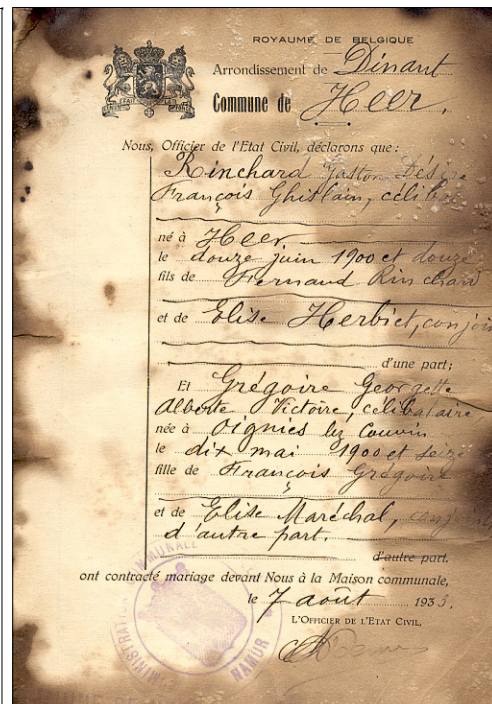 ROYAUME DE BELGIQUE
Arrondissement de Dinant
Commune de Heer.
Nous, Officier de l'Etat Civil, déclarons que :
Rinchard Gaston Désiré
François Ghislain, céliba
né à Heer
le douze juin 1900 et douze
fils de Fernand Rinchard
et de Elise Herbiet, conjoi
d'une part;
Et Grégoire Georgette
Alberte Victoire, célibataire
née à Oignies lez Couvin
le dix mai 1900 et seize
fille de François Grégoire
et de Elise Maréchal,
d'autre part.
d'autre part.
ont contracté mariage devant Nous à la Maison communale,
le 7 août 193
L'OFFICIER DE L'ETAT CIVIL,
NAMUR